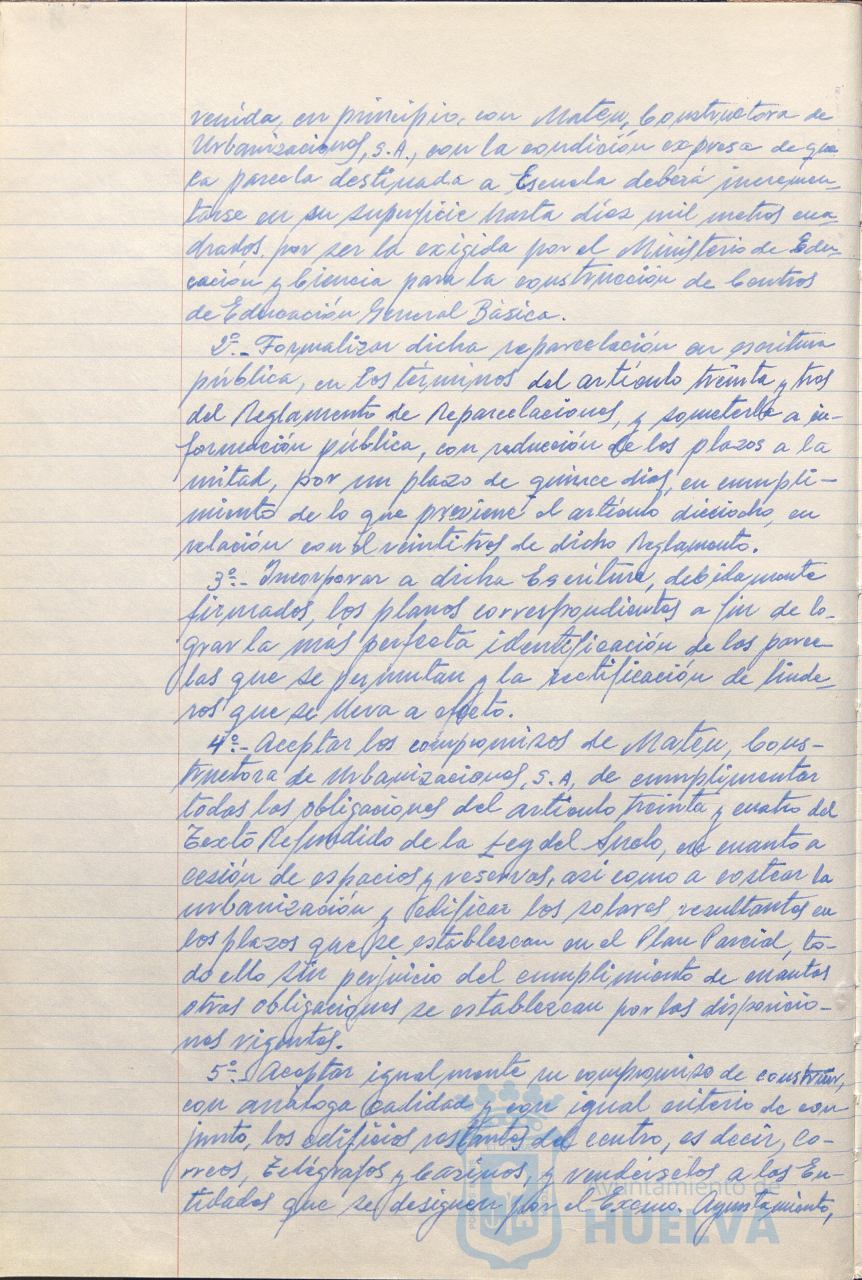 venida, en principio, con Mateu, Constructora de
Urbanizaciones, S.A., con la condición expresa de que
la parcela destinada a Escuela deberá incremen-
tarse en su superficie hasta diez mil metros cua-
drados, por ser la exigida por el Ministerio de Edu-
cación y Ciencia para la construcción de Centros
de Educación General Básica.
2º.- Formalizar dicha reparcelación en escritura
pública, en los términos del artículo treinta y tres
del Reglamento de Reparcelaciones, y someterla a in-
formación pública, con reducción de los plazos a la
mitad, por un plazo de quince días, en cumpli-
miento de lo que previene el artículo dieciocho, en
relación con el veintitres de dicho Reglamento.
3º.- Incorporar a dicha Escritura, debidamente
firmados, los planos correspondientes a fin de lo-
grar la más perfecta identificación de las parce-
las que se permutan y la rectificación de linde-
ros que se lleva a efecto.
4º.- Aceptar los compromisos de Mateu, Cons-
tructora de Urbanizaciones, S.A, de cumplimentar
todas las obligaciones del artículo treinta y cuatro del
Texto Refundido de la Ley del Suelo, en cuanto a
cesión de espacios y reservas, así como a costear la
urbanización y edificar los solares resultantes en
los plazos que se establezcan en el Plan Parcial, to-
do ello sin perjuicio del cumplimiento de cuantas
otras obligaciones se establezcan por las disposicio-
nes vigentes.
5º.- Aceptar igualmente su compromiso de construir,
con análoga calidad y con igual criterio de con
junto, los edificios restantes del centro, es decir, Co-
rreos, Telégrafos y Casinos, y vendérselos a las En-
tidades que se designen por el Excmo. Ayuntamiento,
Ayuntamiento de
HUELVA